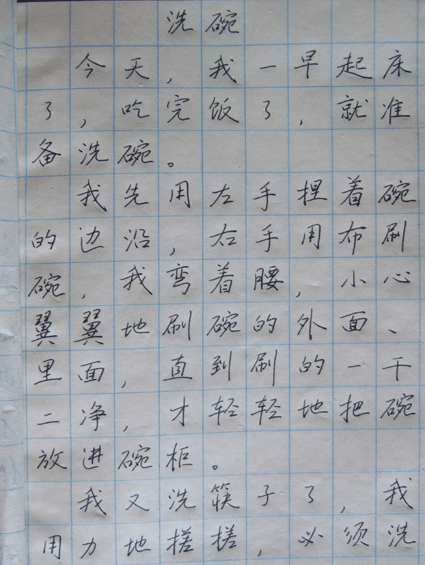 洗碗
今天，我一早起床
了，吃完饭了，就准
备洗碗。
我先用左手捏着碗
的边沿，右手用布刷
碗，我弯着腰，小心
翼翼地刷碗的外面、
里面，直到刷的一干
二净，才轻轻地把碗
放进碗柜。
我又洗筷子了，我
用力地搓搓，必须洗